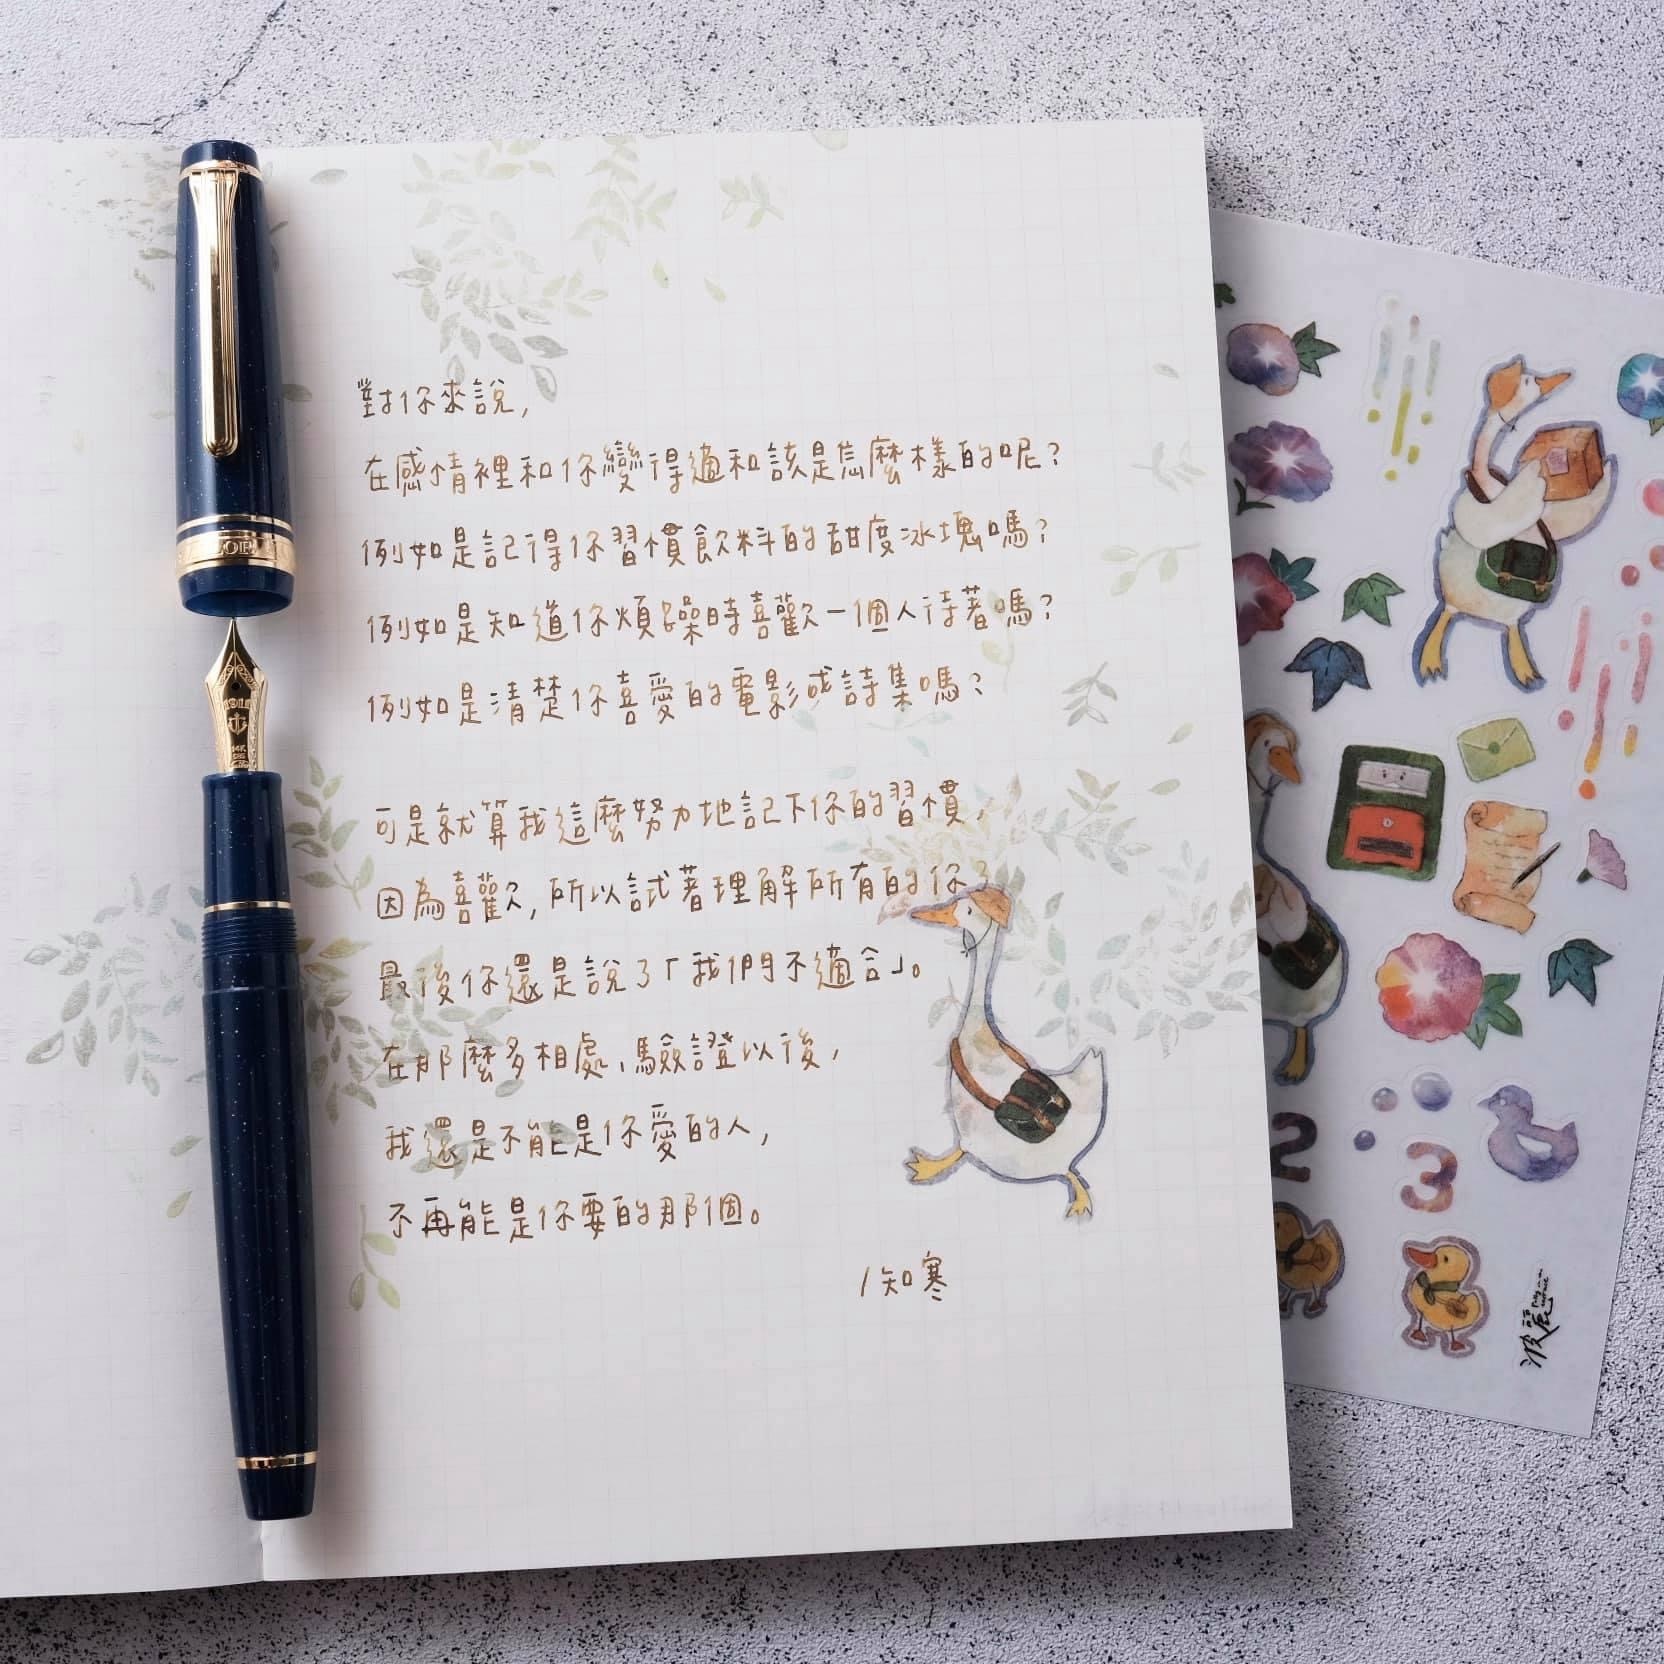 對你來說,
在感情裡和你變得適和該是怎麼樣的呢?
例如是記得你習慣飲料的甜度冰塊嗎?
例如是知道你煩躁時喜歡一個人待著嗎?
例如是清楚你喜愛的電影或詩集嗎?
可是就算我這麼努力地記下你的習慣,
因為喜歡,所以試著理解所有的你了
最後你還是說了「我們不適合」。
在那麼多相處、驗證以後,
我還是不能是你愛的人,
不再能是你要的那個。
/知寒
1911
14K
585
2
3